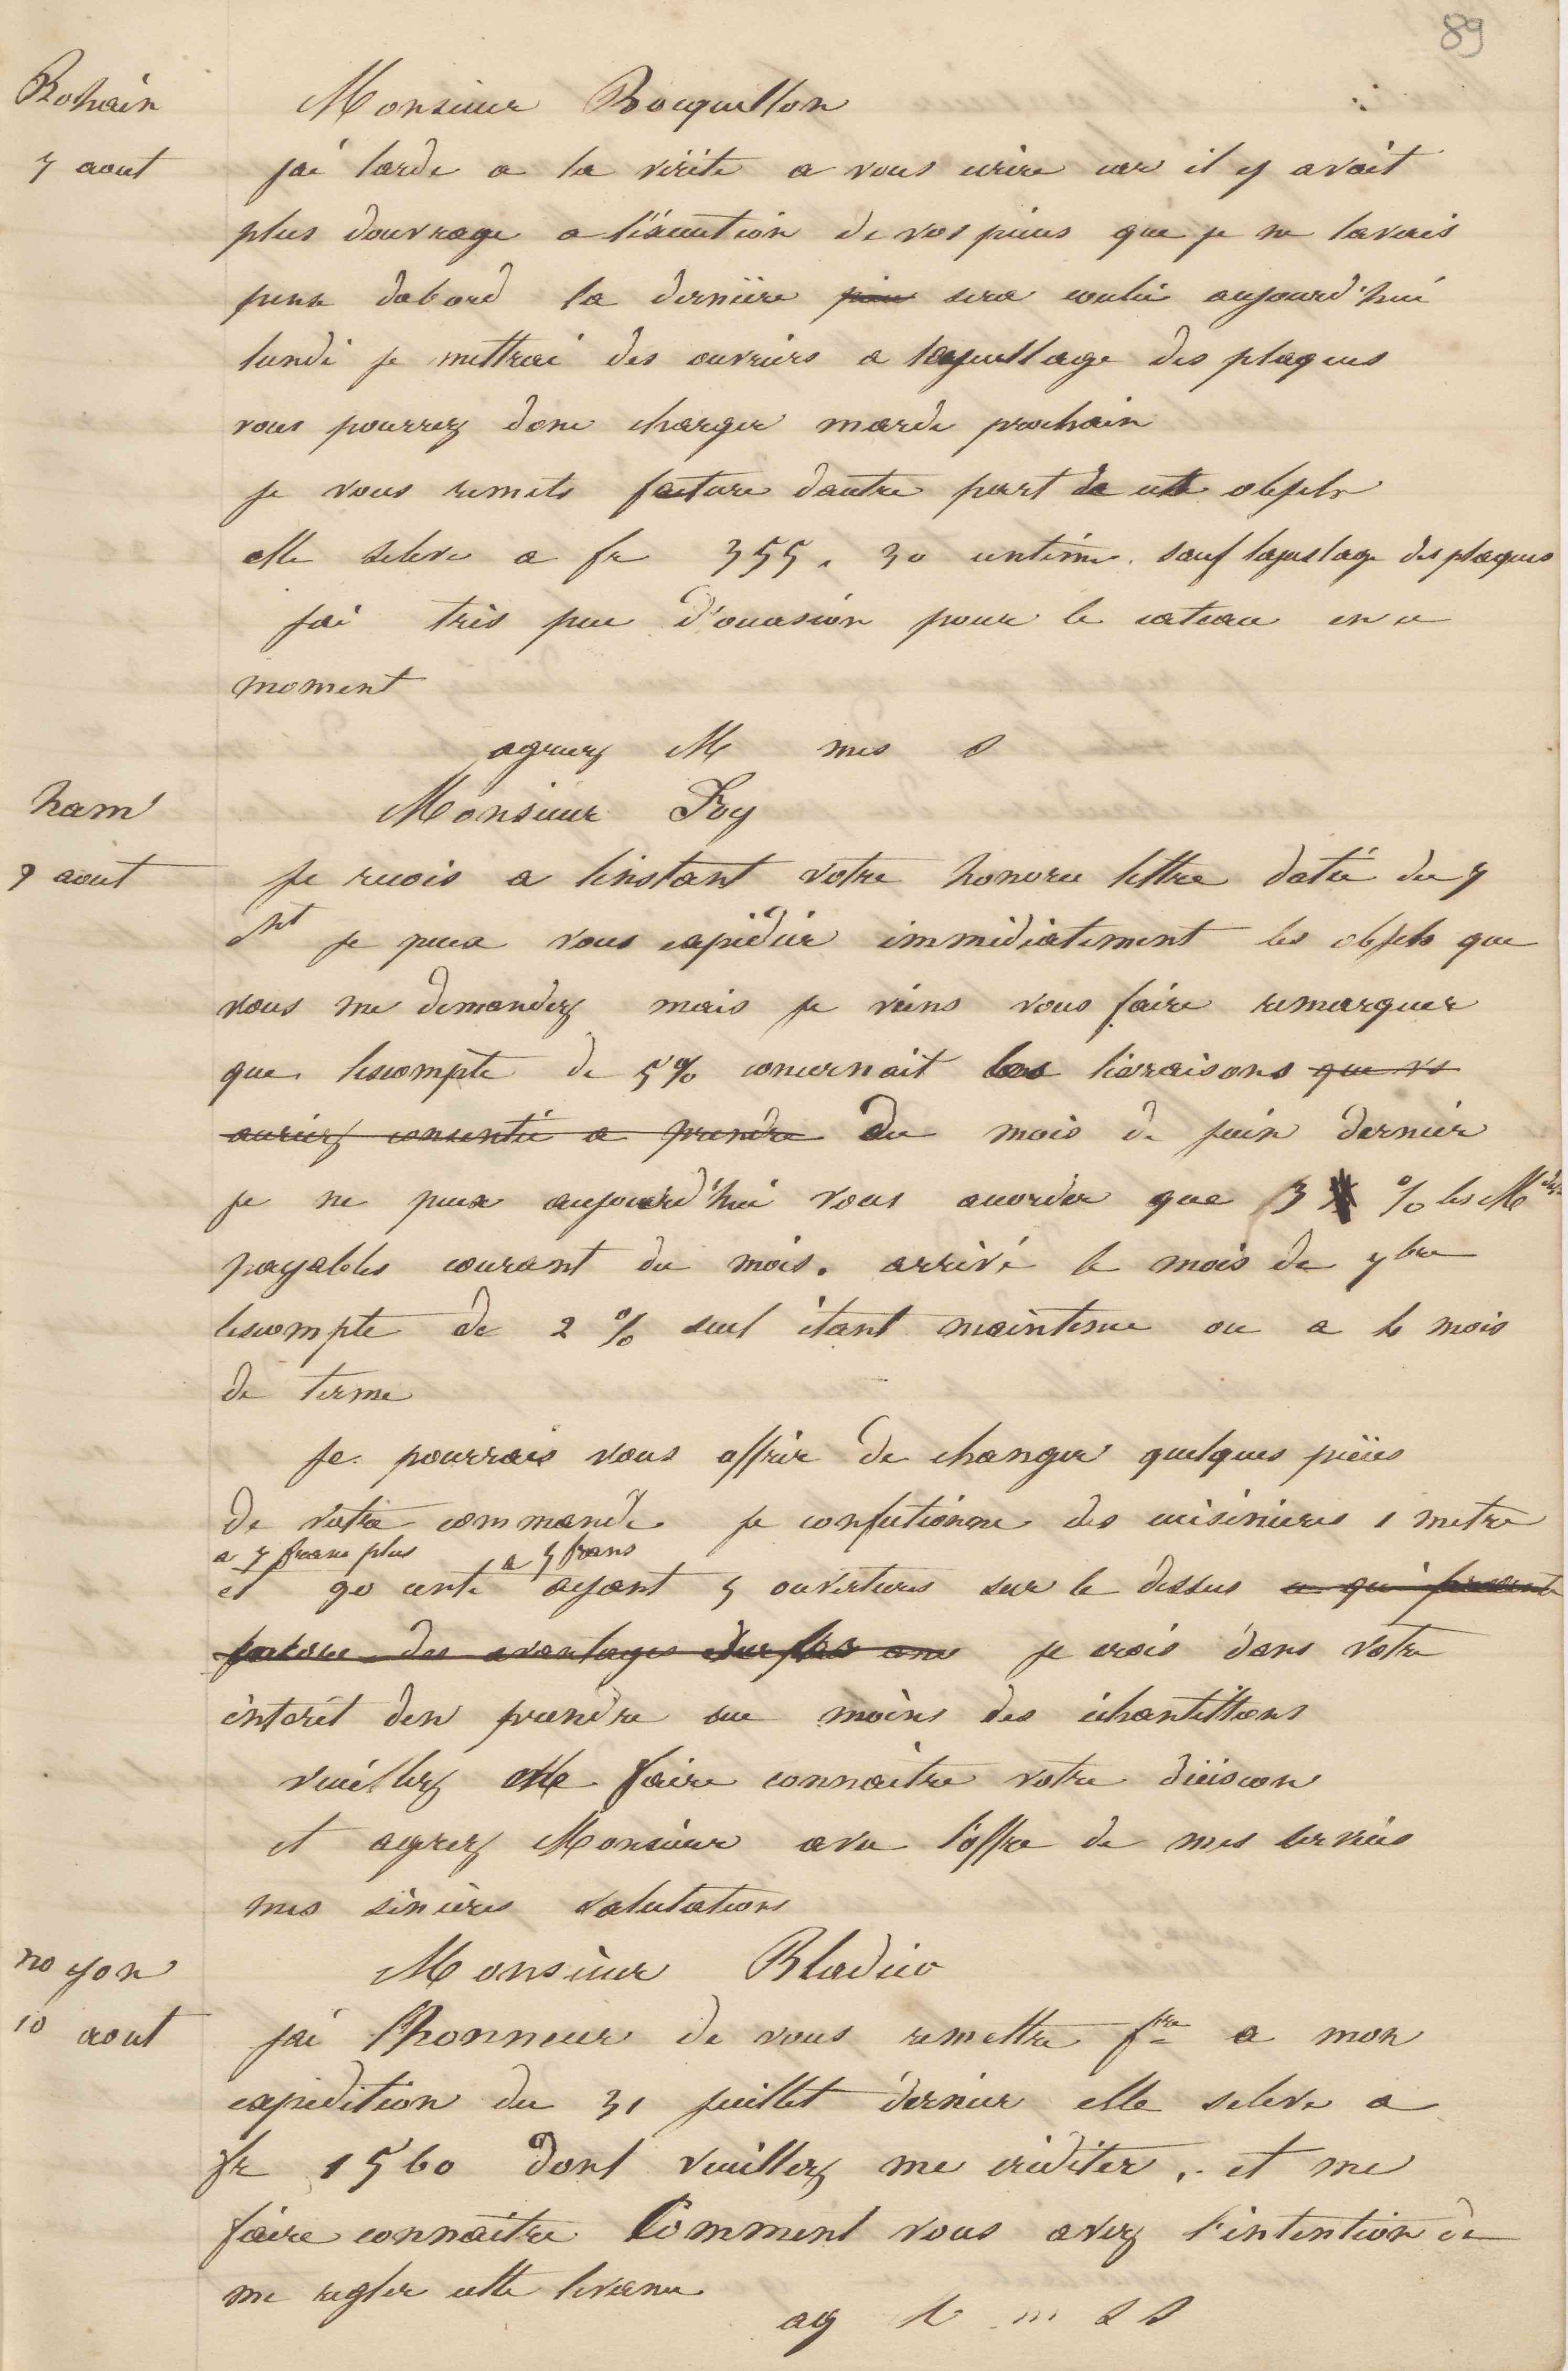 89
Bohain Monsieur Bocquillon
7 aout jai tardé a la vérité a vous ecrire car il y avait
plus douvrage a l'éxecution de vos pieces que je ne lavais
pensé dabord la dernière piece sera coulée aujourd'hui
lundi je mettrai des ouvriers a lajustage des plaques
vous pourrez donc charger mardi prochain
je vous remets facture dautre part de cette objets
elle seleve a fr 355. 30 centime. sauf lajustage des plaques
jai très peu d'occasion pour le cateau en ce
moment
agreez M mes S
ham Monsieur Foy
9 aout Je recois a linstant votre honoree lettre datée du 7
ct je peux vous expédier immédiatement les objets que
vous me demandez mais je viens vous faire remarquer
que lescompte de 5% concernait les livraisons que vs
auriez consentie a prendre du mois de juin dernier
je ne peux aujourd'hui vous accorder que 3 % les Mdises
payables courant du mois. arrivé le mois de 7bre
lescompte de 2 % seul étant maintenu ou a 6 mois
de terme
Je pourrais vous offrir de changer quelques pièces
de votre commande je confectionne des cuisinieres 1 metre
a 7 franc plus a 5 frans
et 90 centi ayant 5 ouvertures sur le dessus ce qui presente
encore des avantages je crois dans votre
intérêt den prendre au moins des échantillons
veuillez Me faire connaitre votre décision
et agréez Monsieur avec l'offre de mes services
mes sincères salutations
noyon Monsieur Bladier
10 aout jai l'honneur de vous remettre fre a mon
expedition du 31 juillet dernier elle seleve a
fr 1560 dont veuillez me créditer, et me
faire connaitre Comment vous avez l'intention de
me regler cette livranc
ag M m S S